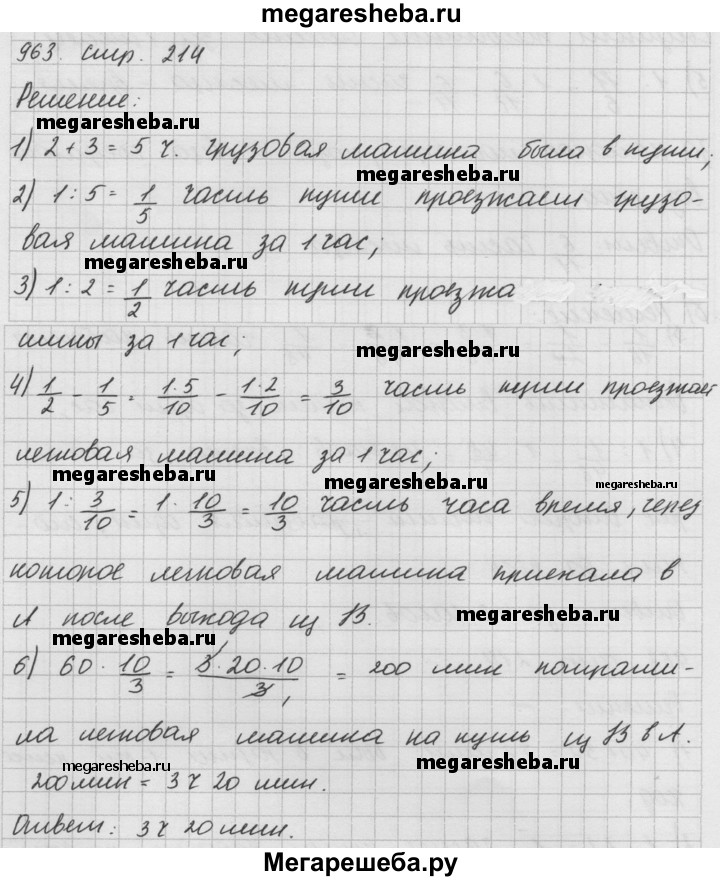 megaresheba.ru
963. стр. 214
Решение:
megaresheba.ru
1) 2 + 3 = 5 ч. грузовая машина была в пути;
megaresheba.ru
2) 1 : 5 = 1/5 часть пути проезжает грузо-
вая машина за 1 час;
megaresheba.ru
3) 1 : 2 = 1/2 часть пути проезжа
шины за 1 час;
megaresheba.ru
4) 1/2 - 1/5 = 1·5/10 - 1·2/10 = 3/10 часть пути проезжает
легковая машина за 1 час;
megaresheba.ru
megaresheba.ru
5) 1 : 3/10 = 1 · 10/3 = 10/3 часть часа время, через
которое легковая машина приехала в
А после выхода из В.
megaresheba.ru
megaresheba.ru
6) 60 · 10/3 = 3·20·10/3 = 200 мин потрати-
ла легковая машина на путь из В в А.
megaresheba.ru
megaresheba.ru
200 мин = 3 ч 20 мин.
Ответ: 3 ч 20 мин.
Мегарешеба.ру